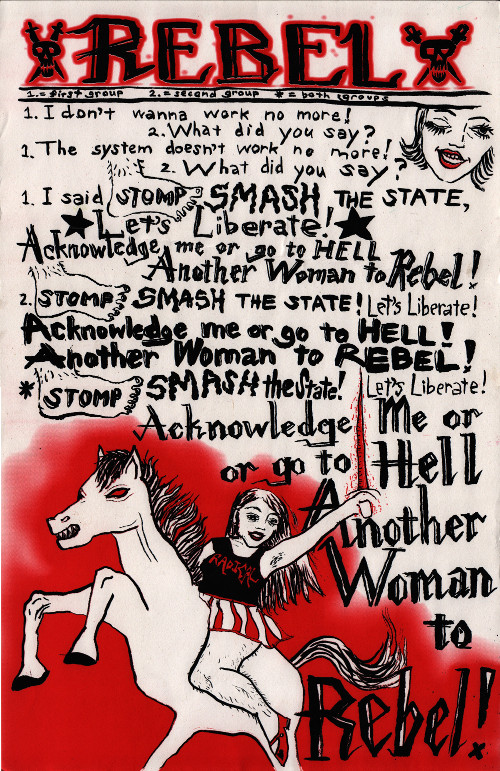 REBEL
1.= first group 2.= second group *= both groups
1. I don't wanna work no more!
2. What did you say?
1. The system doesn't work no more!
2. What did you say?
1. I said STOMP SMASH THE STATE,
★ Let's Liberate! ★
Acknowledge me or go to HELL
Another Woman to Rebel!
2. STOMP SMASH THE STATE! Let's Liberate!
Acknowledge me or go to HELL!
Another Woman to REBEL!
* STOMP SMASH the State! Let's Liberate!
Acknowledge Me or
or go to Hell
Another
Woman
to
Rebel!